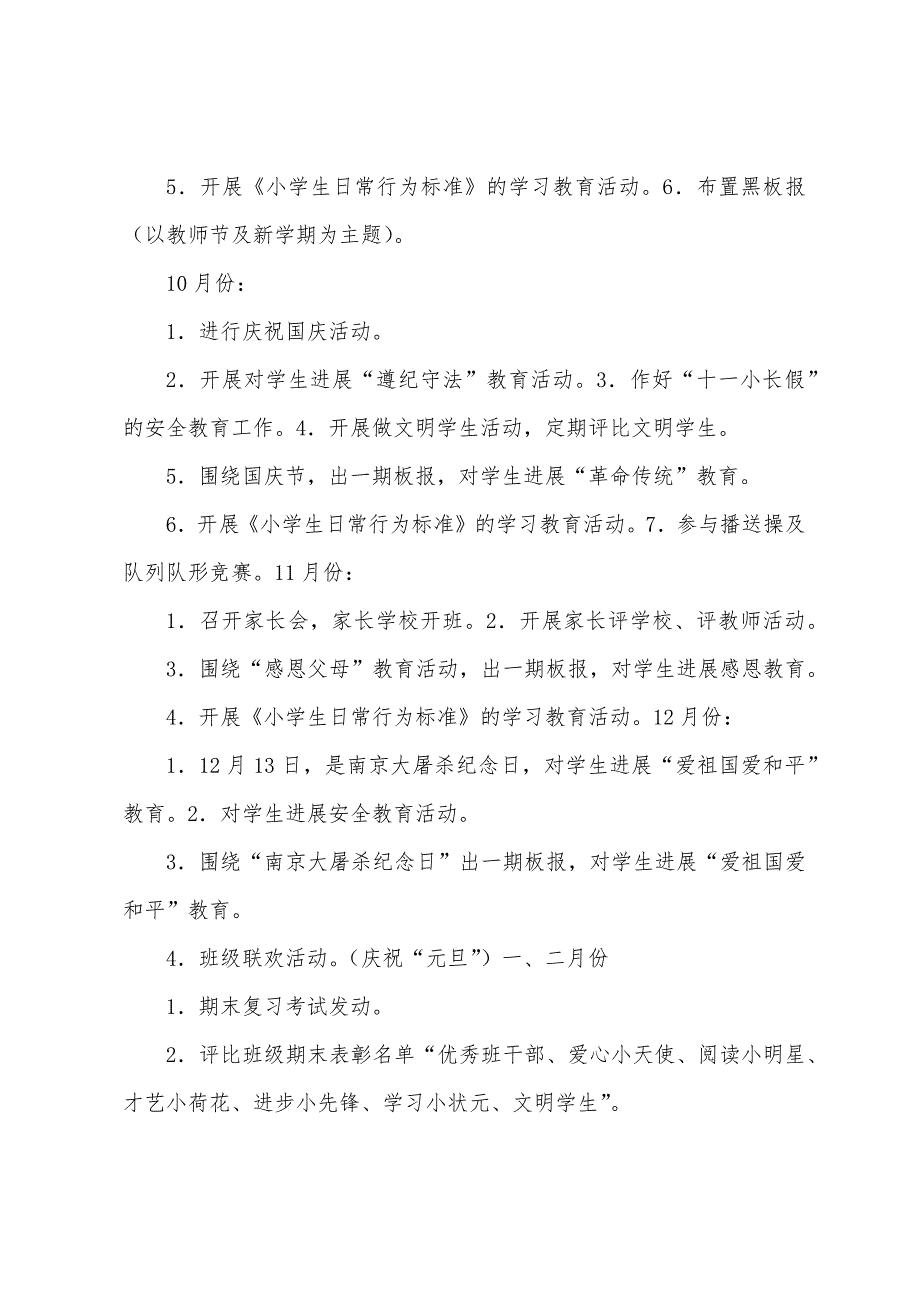 5．开展《小学生日常行为标准》的学习教育活动。6．布置黑板报
（以教师节及新学期为主题）。
10月份：
1．进行庆祝国庆活动。
2．开展对学生进展“遵纪守法”教育活动。3．作好“十一小长假”
的安全教育工作。4．开展做文明学生活动，定期评比文明学生。
5．围绕国庆节，出一期板报，对学生进展“革命传统”教育。
6．开展《小学生日常行为标准》的学习教育活动。7．参与播送操及
队列队形竞赛。11月份：
1．召开家长会，家长学校开班。2．开展家长评学校、评教师活动。
3．围绕“感恩父母”教育活动，出一期板报，对学生进展感恩教育。
4．开展《小学生日常行为标准》的学习教育活动。12月份：
1．12月13日，是南京大屠杀纪念日，对学生进展“爱祖国爱和平”
教育。2．对学生进展安全教育活动。
3．围绕“南京大屠杀纪念日”出一期板报，对学生进展“爱祖国爱
和平”教育。
4．班级联欢活动。（庆祝“元旦”）一、二月份
1．期末复习考试发动。
2．评比班级期末表彰名单“优秀班干部、爱心小天使、阅读小明星、
才艺小荷花、进步小先锋、学习小状元、文明学生”。